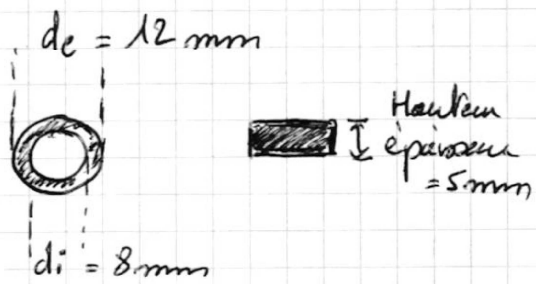 de = 12 mm
Hauteur
épaisseur
= 5 mm
di = 8 mm